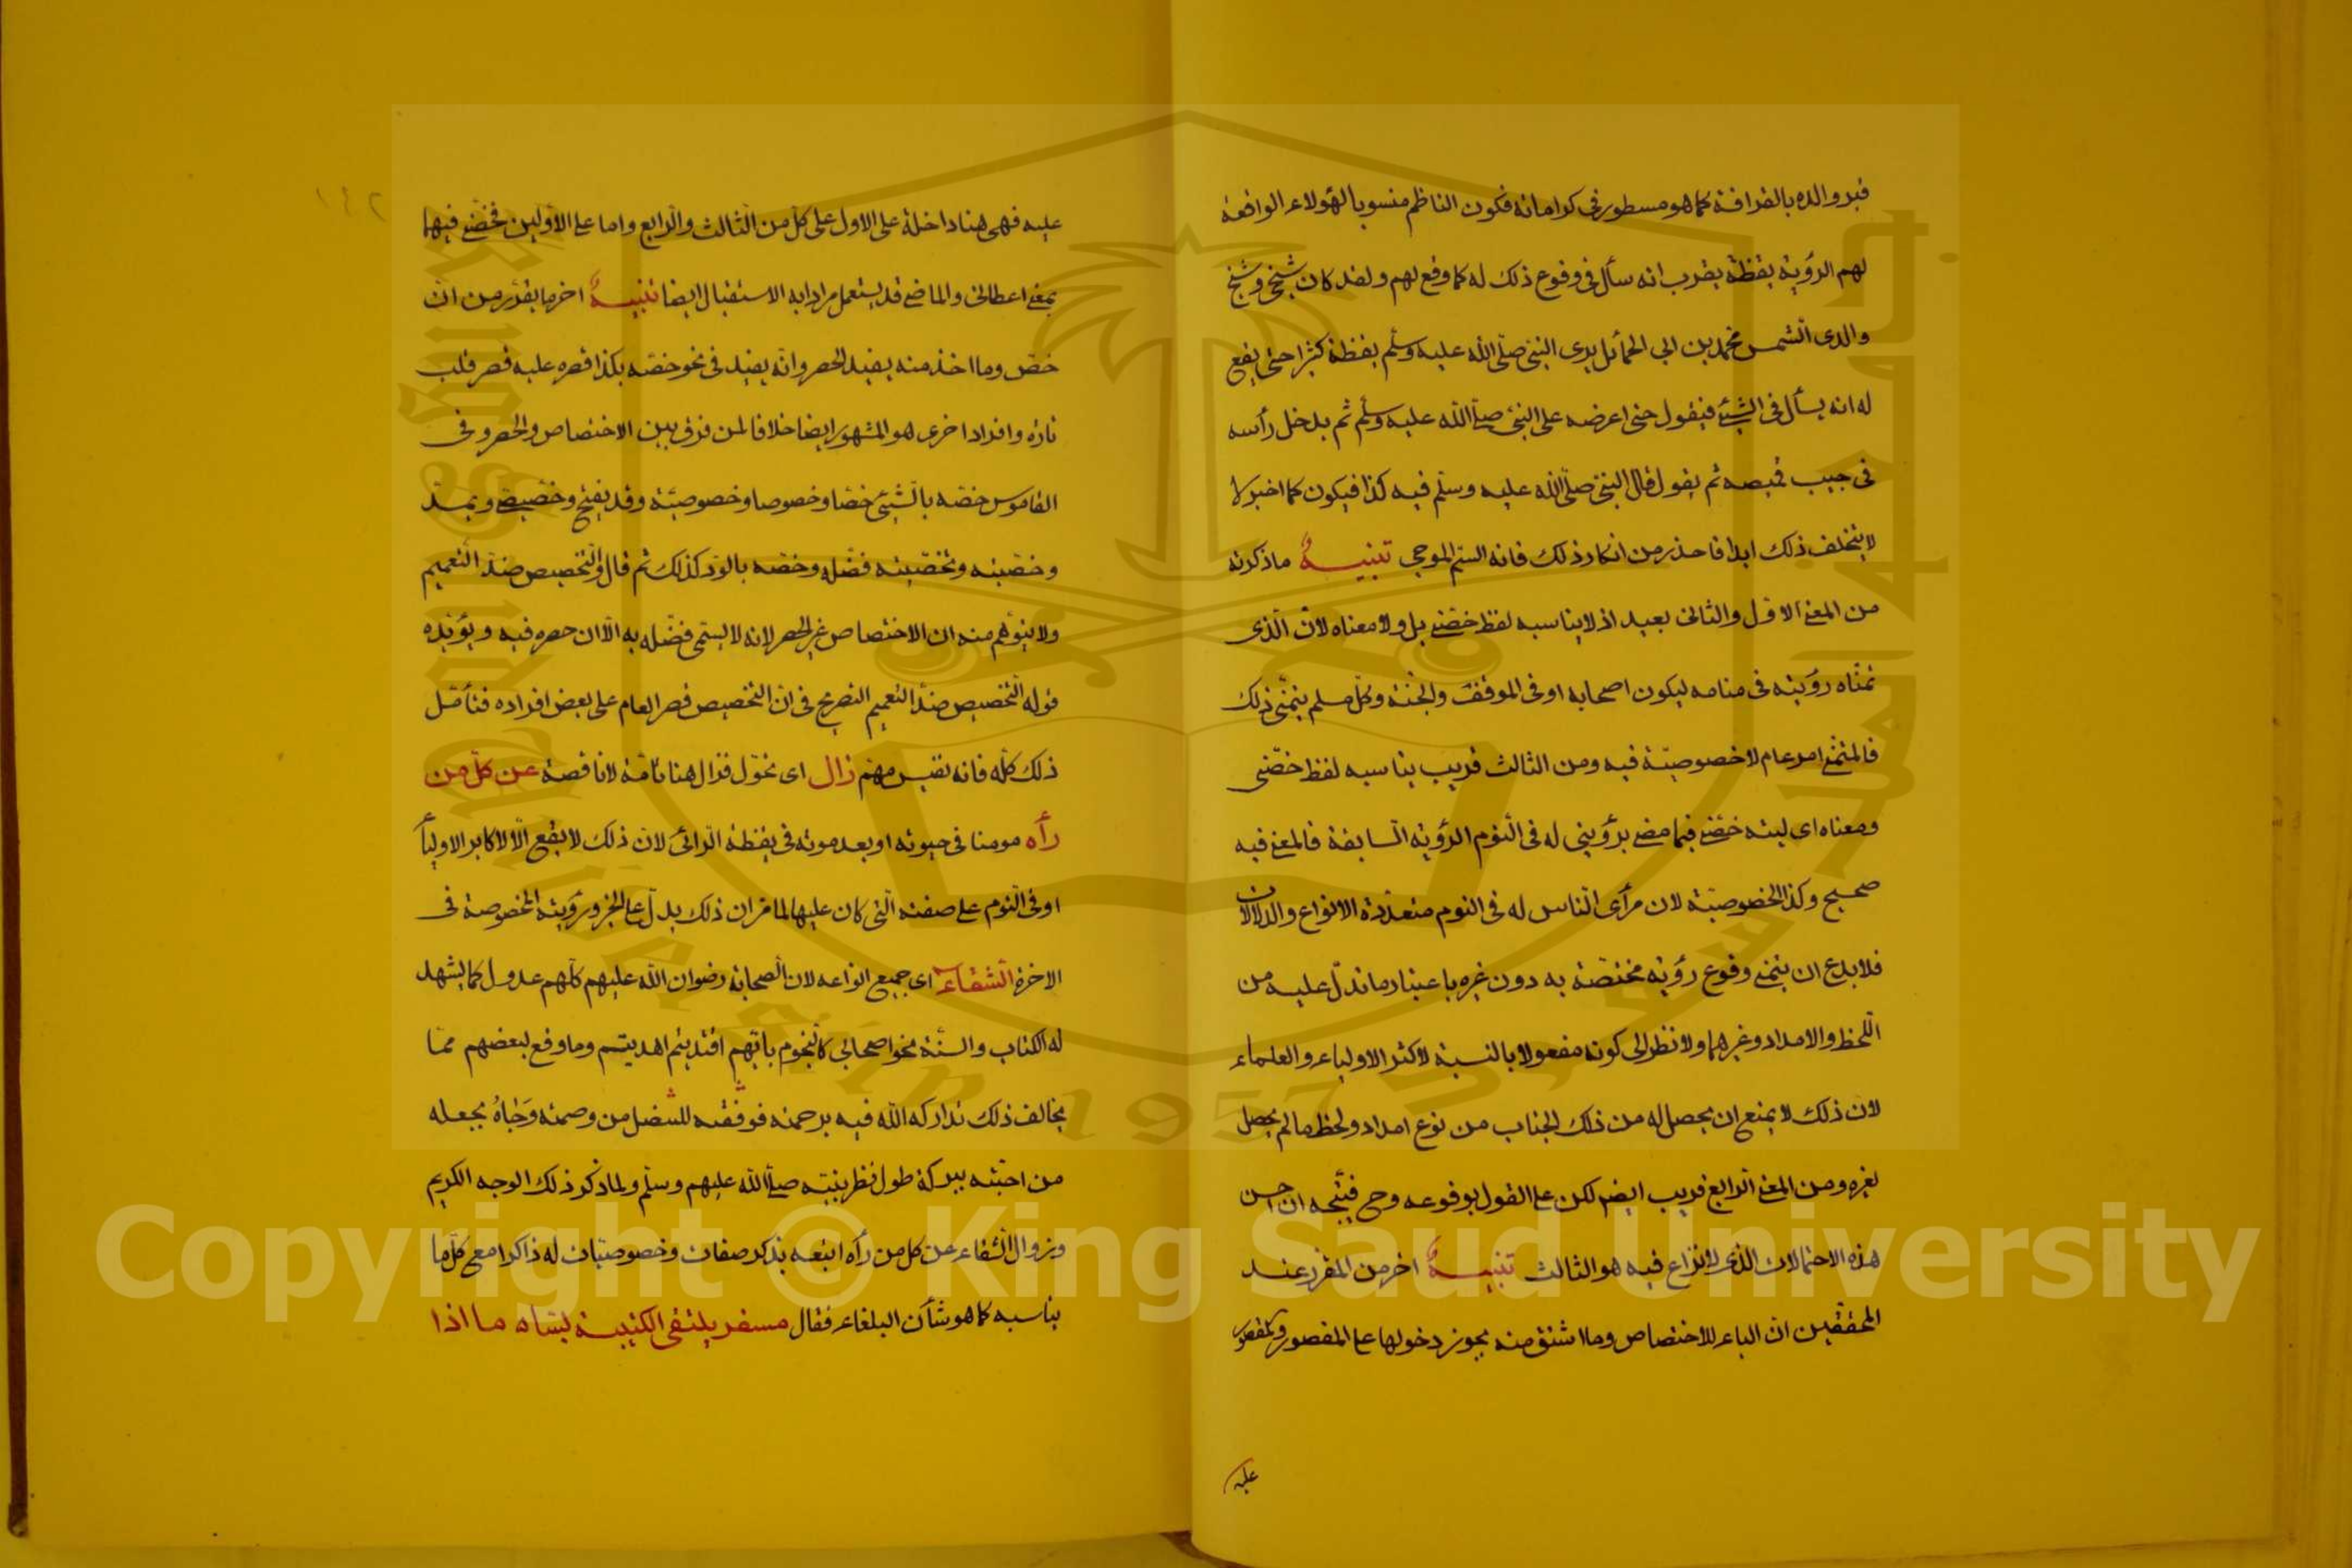 قبر والده بالقرافة كما هو مسطور فى كراماته فكون الناظم منسوبا لهؤلاء الواقعة
لهم الرؤية يقظة يقرب انه سأل فى وقوع ذلك له كما وقع لهم ولقد كان شيخى وشيخ
والدى الشمس محمد بن ابى الحمائل يرى النبى صلى الله عليه وسلم يقظة كثيرا حتى يقع
له انه يسأل فى الشيئ فيقول حتى اعرضه على النبى صلى الله عليه وسلم ثم يدخل رأسه
فى جيب قميصه ثم يقول قال النبى صلى الله عليه وسلم فيه كذا فيكون كما اخبر لا
لا يتخلف ذلك ابدا فاحذر من انكار ذلك فانه السم الموحى تنبيه ما ذكرته
من المعنى الاول والثانى بعيد اذ لا يناسبه لفظ خصنى بل ولا معناه لان الذى
تمناه رؤيته فى منامه ليكون اصحابه او فى الموقف والجنة وكل مسلم يتمنى ذلك
فالمتمنى امر عام لا خصوصية فيه ومن الثالث قريب يناسبه لفظ خصنى
ومعناه اى ليته خصنى فيما مضى برؤيتى له فى النوم الرؤية السابقة فالمعنى فيه
صحيح وكذا الخصوصية لان مرأى الناس له فى النوم متعددة الانواع والدلالات
فلا بدع ان يتمنى وقوع رؤية مختصة به دون غيره باعتبار ما تدل عليه من
اللحظ والامداد وغيرهما ولا نظر الى كونه مفعولا بالنسبة لاكثر الاولياء والعلماء
لان ذلك لا يمنع ان يحصل له من ذلك الجناب من نوع امداد ولحظ ما لم يحصل
لغيره ومن المعنى الرابع قريب ايضا لكن على القول بوقوعه وح فيتجه ان احسن
هذه الاحتمالات الذى لا نزاع فيه هو الثالث تنبيه اخر من المقرر عند
المحققين ان الباء للاختصاص وما اشتق منه يجوز دخولها على المقصور والمقصور
عليه
عليه فهى هنا داخلة على الاول على كل من الثالث والرابع واما على الاولين فخصنى فيهما
بمعنى اعطانى والماضى قد يستعمل مرادا به الاستقبال ايضا تنبيه اخر ما يقرر من ان
خص وما اخذ منه يفيد الحصر وانه يفيد فى نحو خصه بكذا قصره عليه قصر قلب
تارة وافراد اخرى هو المشهور ايضا خلافا لمن فرق بين الاختصاص والحصر وفى
القاموس خصه بالشيئ خصا وخصوصا وخصوصية وقد يفتح وخصيصى ويمد
وخصيته وتخصيته فضله وخصه بالود كذلك ثم قال والتخصيص ضد التعميم
ولا يتوهم منه ان الاختصاص غير الحصر لانه لا يسمى فضله به الا ان حصره فيه ويؤيده
قوله التخصيص ضد التعميم الصريح فى ان التخصيص قصر العام على بعض افراده فتأمل
ذلك كله فانه نفيس مهم زال اى تحول فزال هنا تامة لا ناقصة عن كل من
رأه مومنا فى حيوته او بعد موته فى يقظة الرائى لان ذلك لا يقع الا لاكابر الاولياء
او فى النوم على صفته التى كان عليها لما مر ان ذلك يدل على الخير ورؤيته المخصوصة فى
الاخرة الشقاء اى جميع انواعه لان الصحابة رضوان الله عليهم كلهم عدول كما يشهد
له الكتاب والسنة نحو اصحابى كالنجوم بايهم اقتديتم اهديتم وما وقع لبعضهم مما
يخالف ذلك تداركه الله فيه برحمته فوفقه للتنصل من وصمته وحباه بجعله
من احبته ببركة طول نظر نبيه صلى الله عليهم وسلم ولما ذكر ذلك الوجه الكريم
وزوال الشقاء عن كل من رأه اتبعه بذكر صفات وخصوصيات له ذاكرا مع كل ما
يناسبه كما هو شأن البلغاء فقال مسفر يلتقى الكتيبة بساما اذا